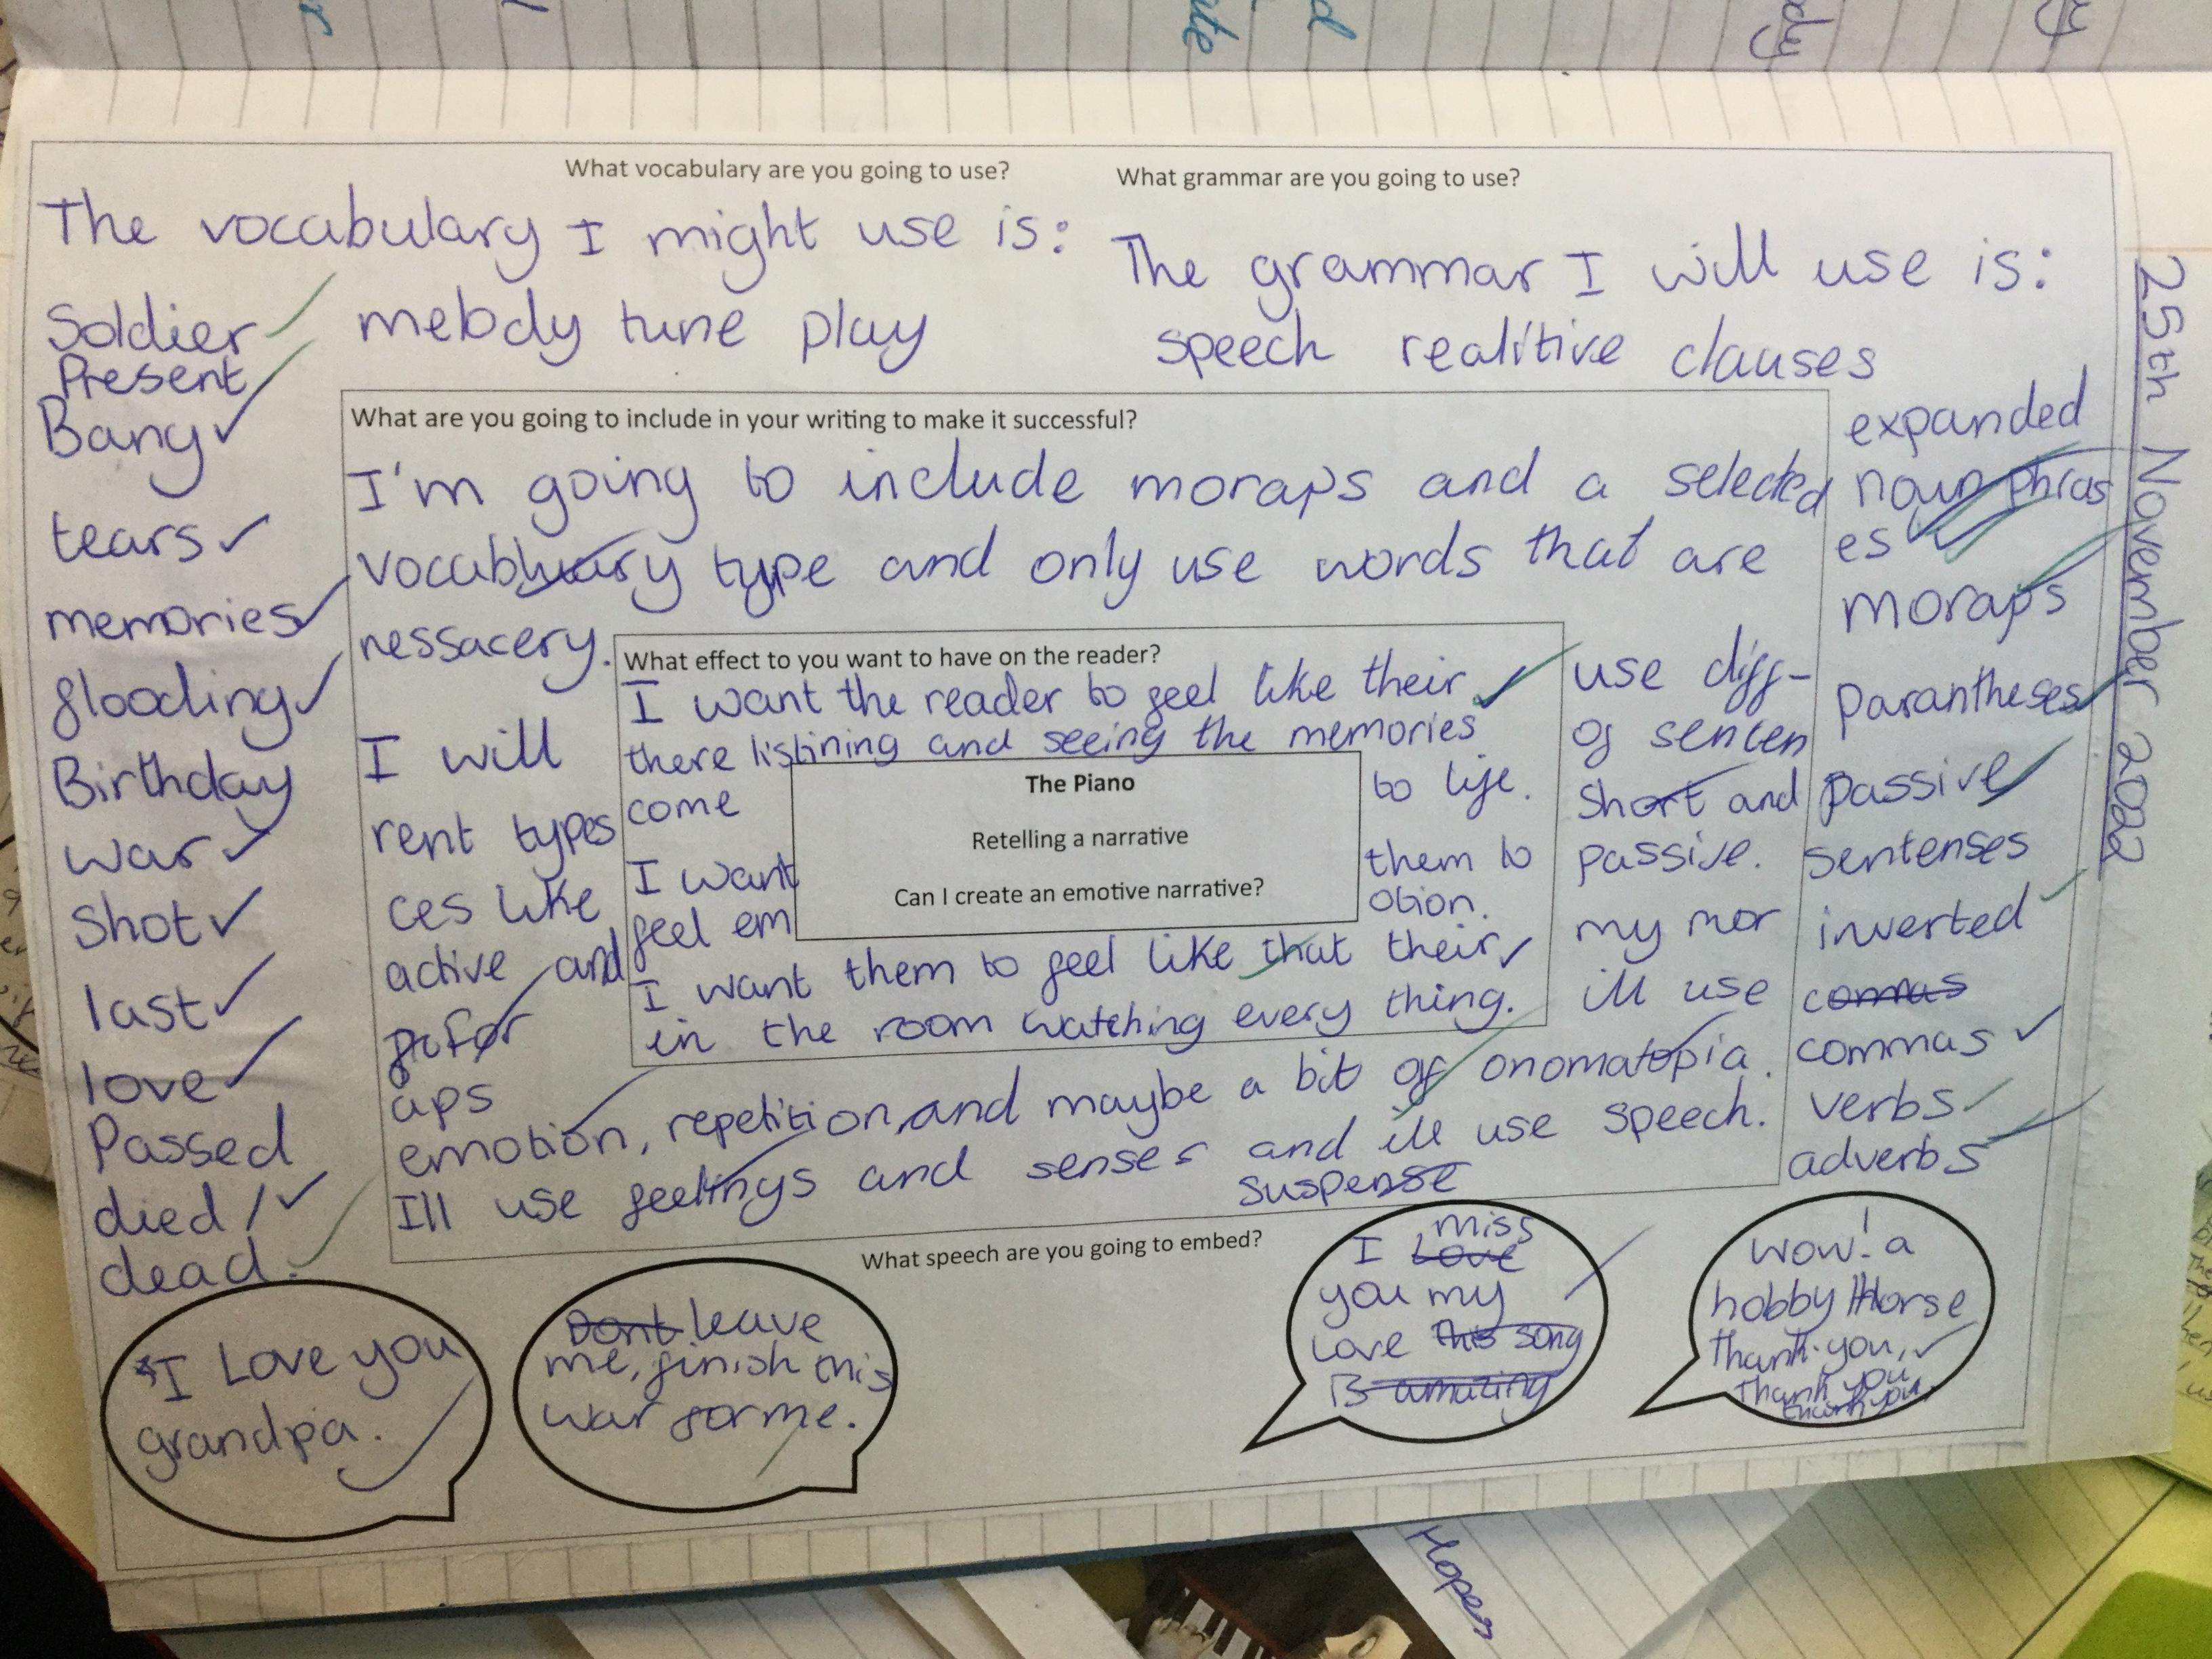 What vocabulary are you going to use?
The vocabulary I might use is:
melody tune play
Soldier
Present
Bang
tears
memories
flooding
Birthday
war
Shot
last
love
Passed
died /
dead
What grammar are you going to use?
The grammar I will use is:
speech realitive clauses
expanded
noun phras
es
moraps
parantheses
passive
sentenses
inverted
commas
commas
verbs
adverbs
25th November 2022
What are you going to include in your writing to make it successful?
I'm going to include moraps and a selected
type and only use words that are
nessacery.
I will use diff-
rent types of senten
ces like short and
active and passive.
my mor
aps ill use
emotion, repetition, and maybe a bit of onomatopia.
Ill use feelings and senses and ill use speech.
suspense
What effect to you want to have on the reader?
I want the reader to feel like their
there listining and seeing the memories
come to life.
I want them to
feel em otion.
I want them to feel like that their
in the room watching every thing.
The Piano
Retelling a narrative
Can I create an emotive narrative?
What speech are you going to embed?
I Love you
grandpa.
Dont leave
me, finish this
war for me.
miss
I Love
you my
Love this song
is amazing
Wow! a
hobby Horse
thank you,
thank you
thank you.
Hopes